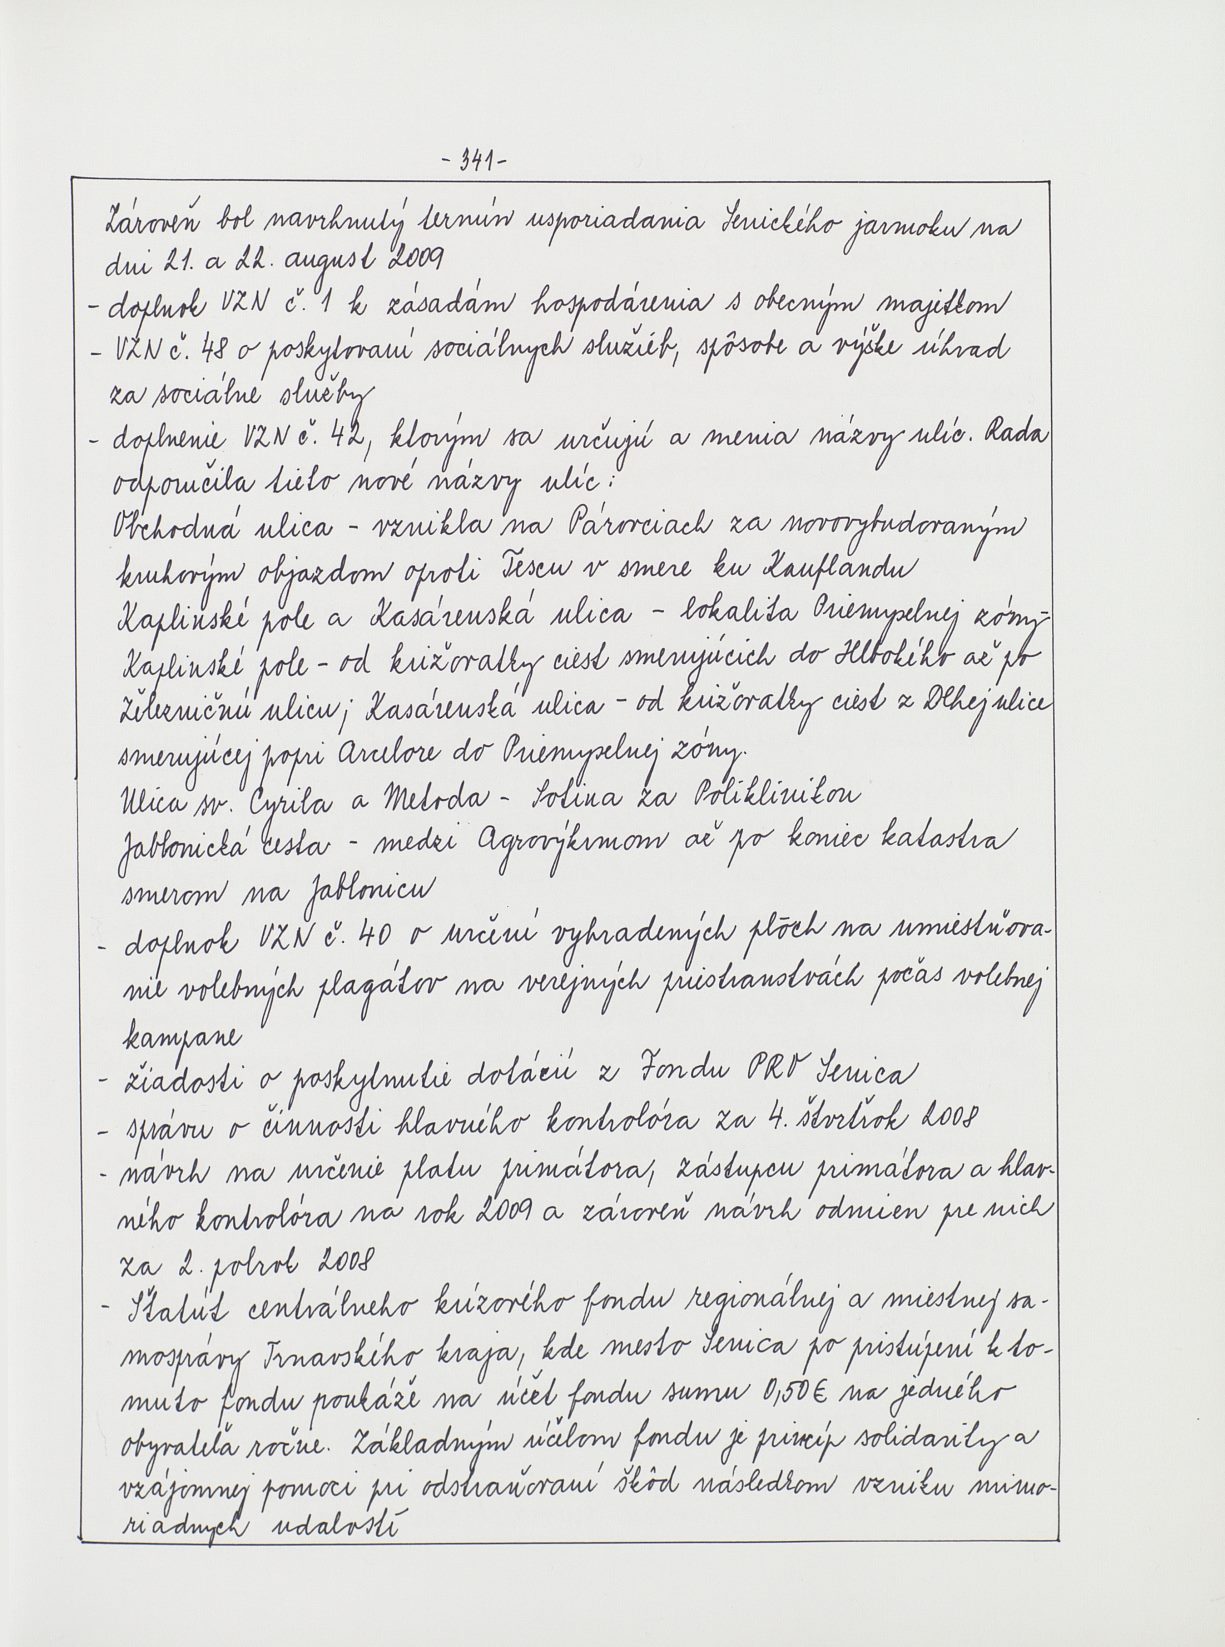 - 341 -
Zároveň bol navrhnutý termín usporiadania Senického jarmoku na
dni 21. a 22. august 2009
- doplnok VZN č. 1 k zásadám hospodárenia s obecným majetkom
- VZN č. 48 o poskytovaní sociálnych služieb, spôsobe a výške úhrad
za sociálne služby
- doplnenie VZN č. 42, ktorým sa určujú a menia názvy ulíc. Rada
odporučila tieto nové názvy ulíc:
Obchodná ulica - vznikla na Párovciach za novovybudovaným
kruhovým objazdom oproti Tescu v smere ku Kauflandu
Kaplinské pole a Kasárenská ulica - lokalita Priemyselnej zóny -
Kaplinské pole - od križovatky ciest smerujúcich do Hlbokého až po
Železničnú ulicu; Kasárenská ulica - od križovatky ciest z Dlhej ulice
smerujúcej popri Arcelore do Priemyselnej zóny.
Ulica sv. Cyrila a Metoda - Sotina za Poliklinikou
Jablonická cesta - medzi Agrovýkrmom až po koniec katastra
smerom na Jablonicu
- doplnok VZN č. 40 o určení vyhradených plôch na umiestňova-
nie volebných plagátov na verejných priestranstvách počas volebnej
kampane
- žiadosti o poskytnutie dotácií z Fondu PRO Senica
- správu o činnosti hlavného kontrolóra za 4. štvrťrok 2008
- návrh na určenie platu primátora, zástupcu primátora a hlav-
ného kontrolóra na rok 2009 a zároveň návrh odmien pre nich
za 2. polrok 2008
- Štatút centrálneho krízového fondu regionálnej a miestnej sa-
mosprávy Trnavského kraja, kde mesto Senica po pristúpení k to-
muto fondu poukáže na účet fondu sumu 0,50 € na jedného
obyvateľa ročne. Základným účelom fondu je princíp solidarity a
vzájomnej pomoci pri odstraňovaní škôd následkom vzniku mimo-
riadnych udalostí